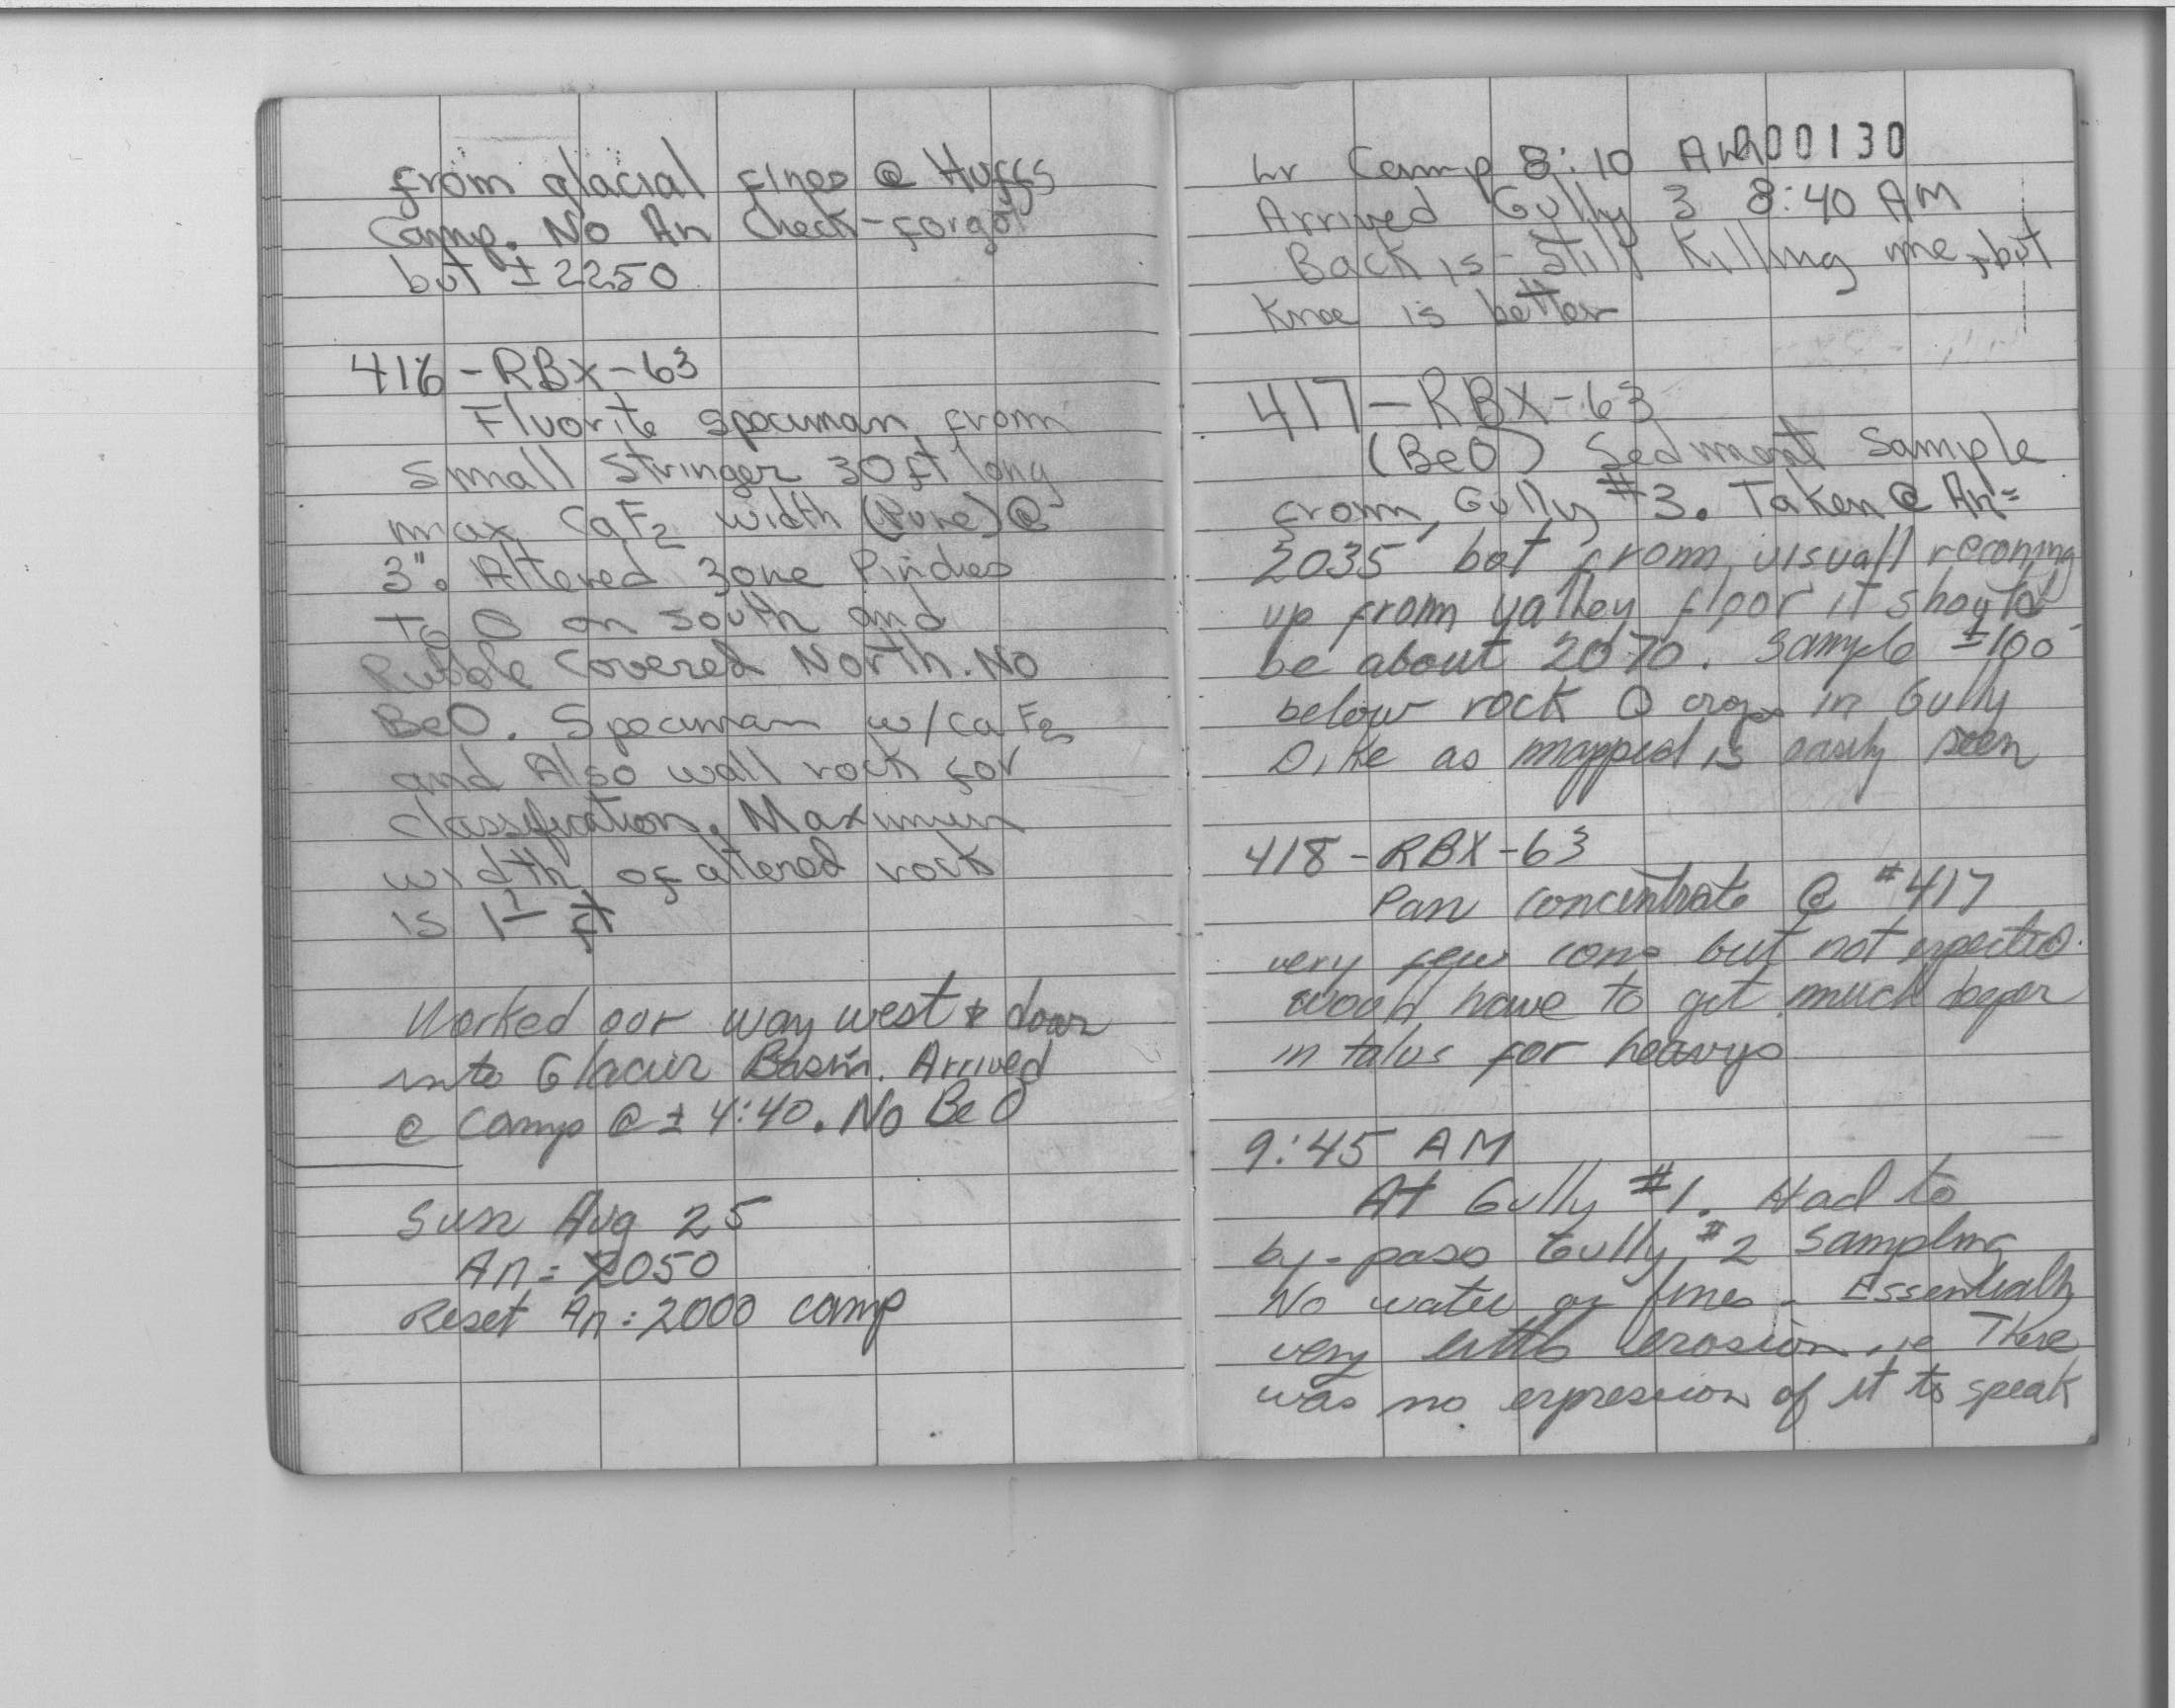 from glacial fines @ Huffs
Camp. No An Check-forgot
but ± 2250
416-RBX-63
Fluorite specuman from
small stringer 30 ft long
max CaF2 width (Pure) @
3". Altered zone Pinches
To O on south and
Rubble Covered North. No
BeO. Specuman w/CaF2
and Also wall rock for
classification. Maximum
width of altered rock
is 1 ± ft
Worked our way west & down
into Glacier Basin. Arrived
@ Camp @ ± 4:40. No BeO
Sun Aug 25
An = 2050
Reset An = 2000 camp
000130
Lv Camp 8:10 AM
Arrived Gully 3 8:40 AM
Back is still killing me, but
Knee is better
417-RBX-63
(BeO) Sediment Sample
from Gully #3. Taken @ An =
2035' bot from visuall reconing
up from valley floor it should
be about 2070. Sample ±100'
below rock O crops in Gully
Dike as mapped is easily seen
418-RBX-63
Pan concentrate @ #417
very few cons but not expected.
would have to get much deeper
in talus for heavys
9:45 AM
At Gully #1. Had to
by-pass Gully #2 Sampling
No water or fines - Essentially
very little erosion, ie There
was no expression of it to speak